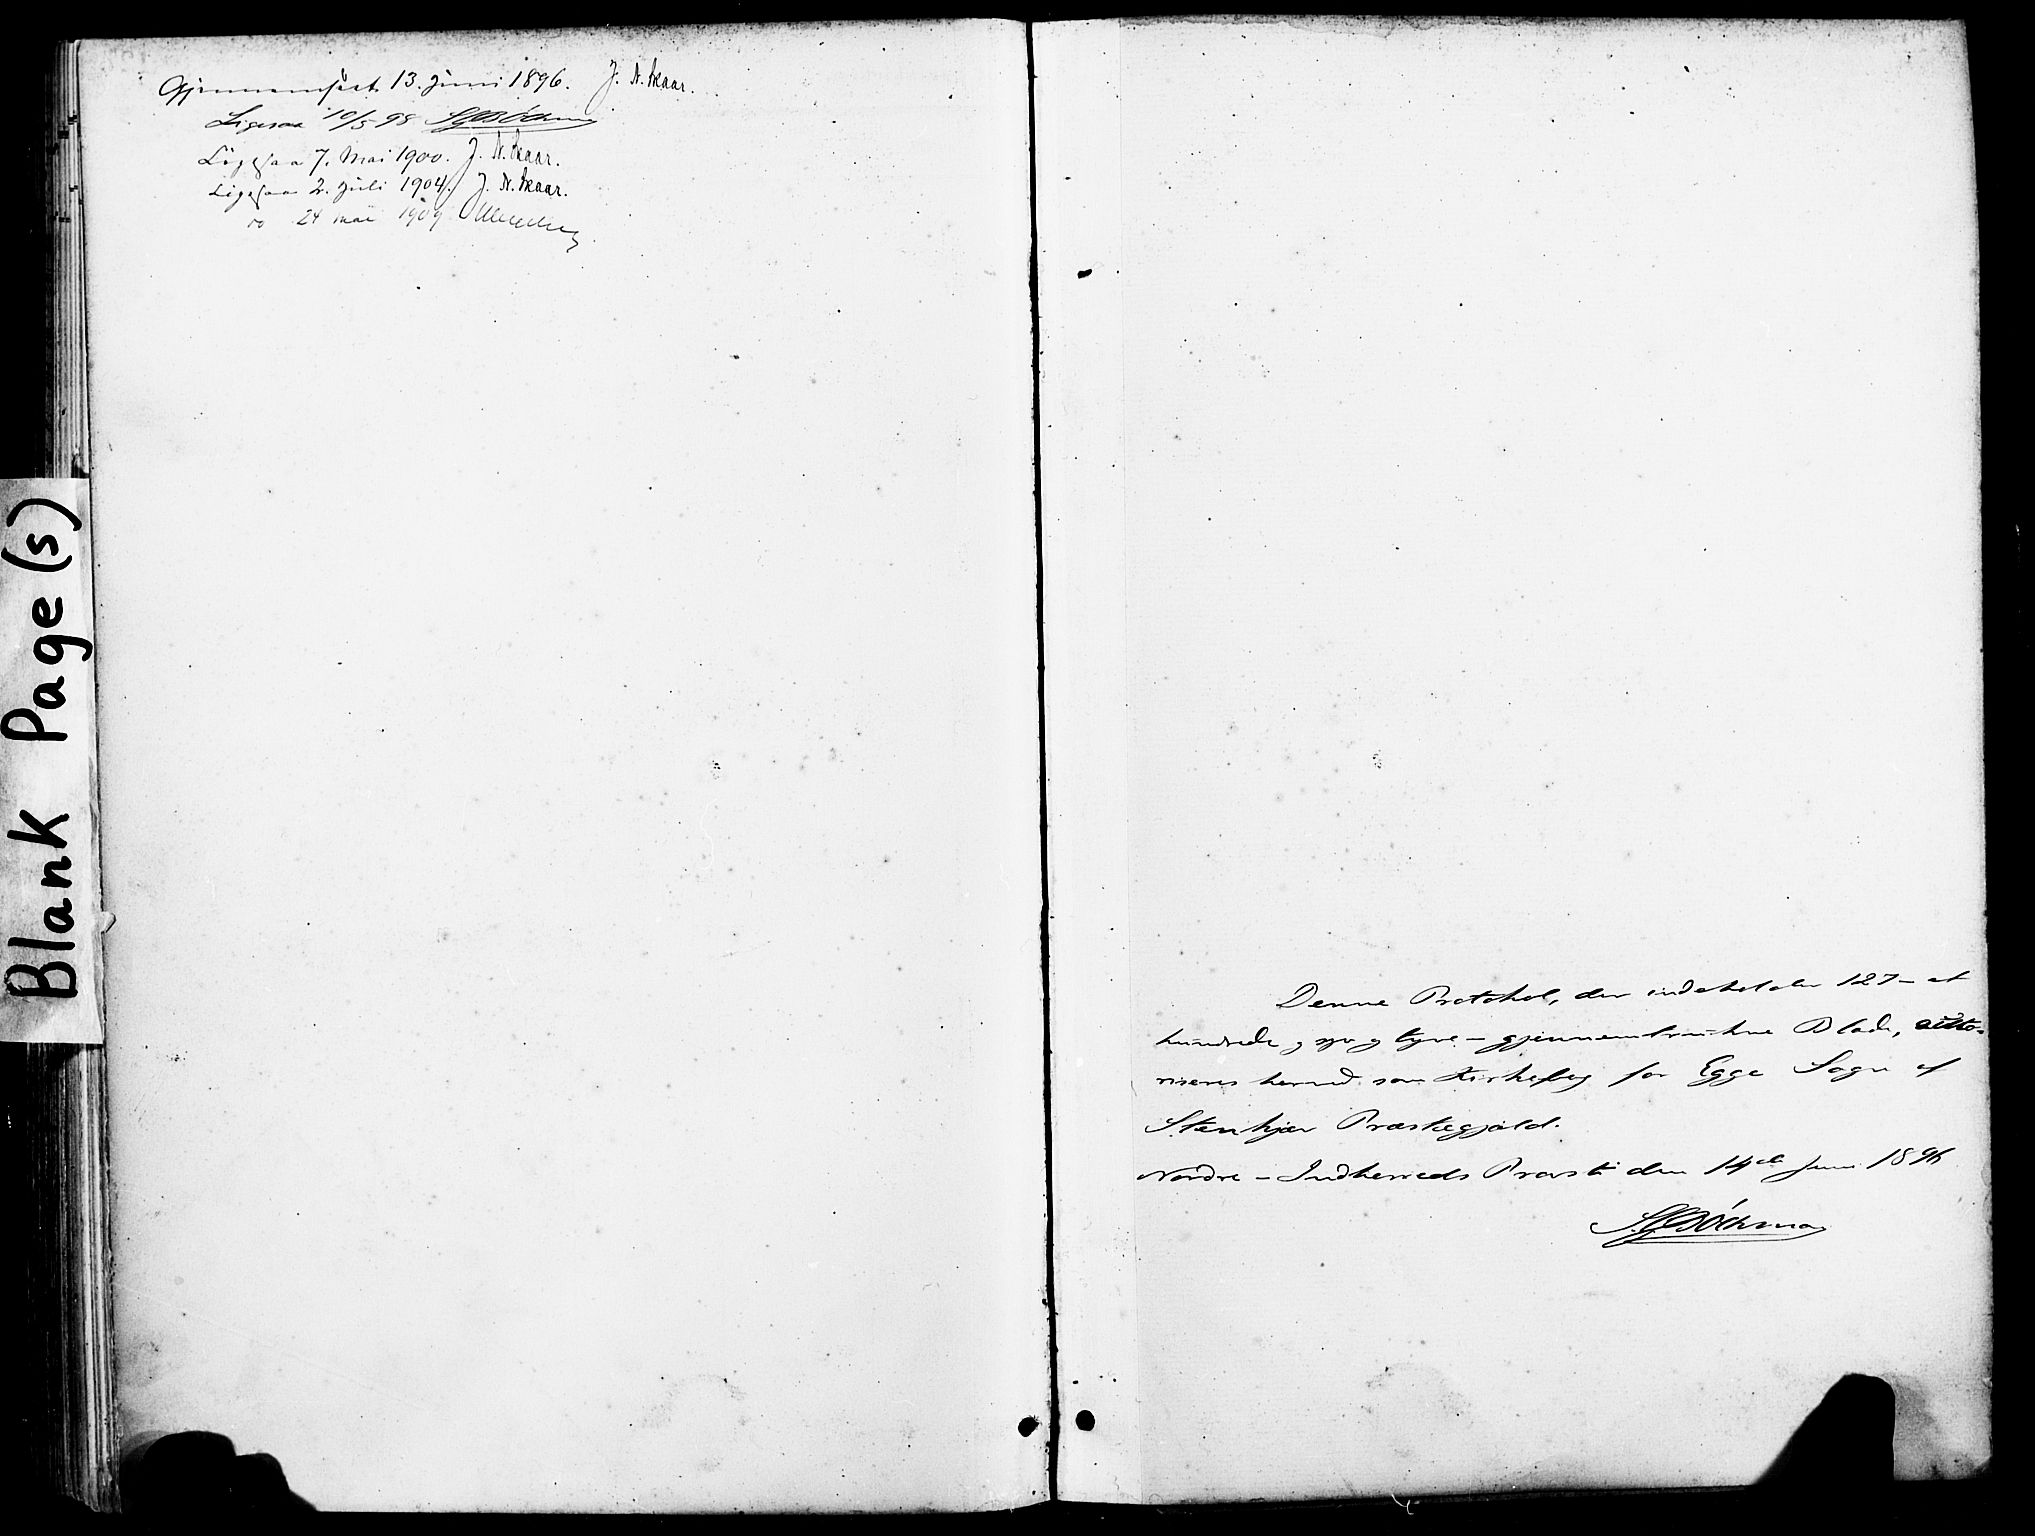 Gjennemseet 13. Juni 1896. J. N. Skaar.
Ligesaa 10/5 98
Ligesaa 7. Mai 1900. J. N. Skaar.
Ligesaa 2. Juli 1904. J. N. Skaar.
do 24 mai 1909
Blank Page (s)
Denne Protokol, der indeholder 127 - et
hundrede og syv og tyve - gjennemtrukne Blade, aŭto-
riseres herved som Kirkebog for Egge Sogn af
Stenkjær Præstegjæld.
Nordre - Indherreds Provsti den 14de Juni 1896